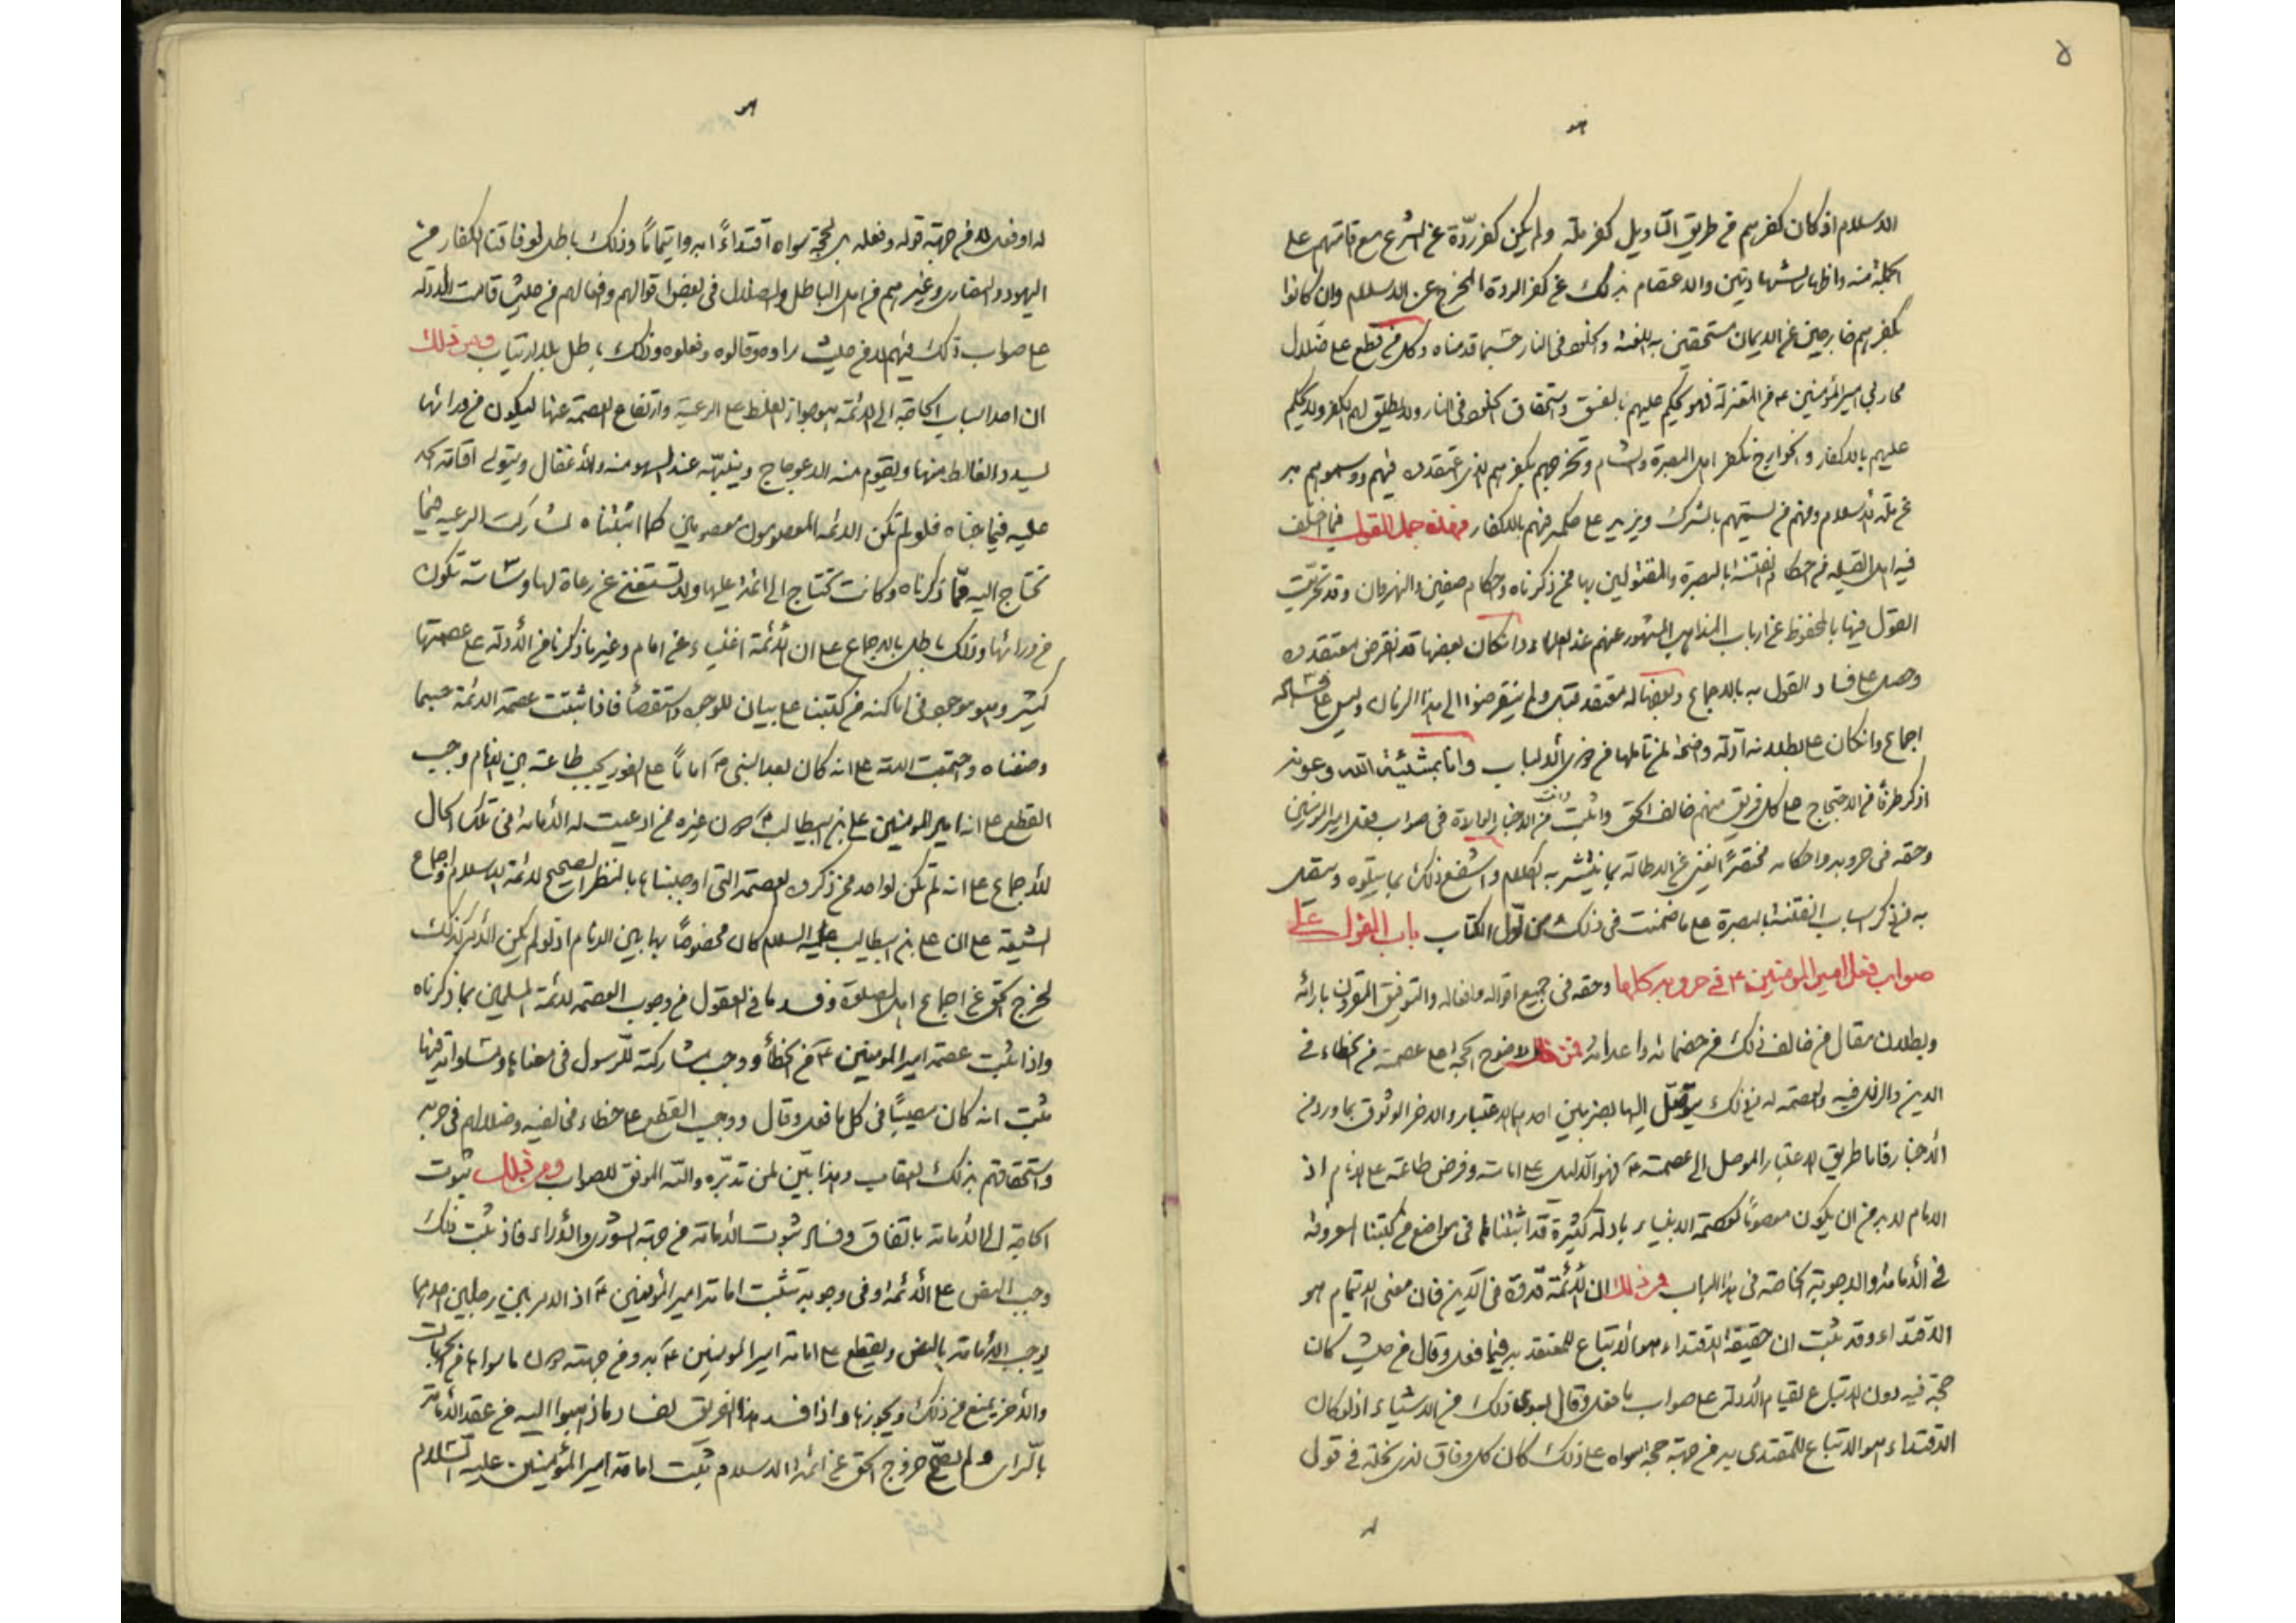 ٥
هو
الاسلام اذ كان كفرهم من طريق التاويل كفر ملة ولم يكن كفر ردّة عن الشرع مع اقامتهم على
الجملة منه واظهار الشهادتين والاعتصام بذلك عن كفر الردة المخرج عن الاسلام وان كانوا
بكفرهم خارجين عن الايمان مستحقين به اللعنة والخلود فى النار حسبما قدمناه وكل من قطع على ضلال
محاربي امير المؤمنين ع من المعتزلة فهو يحكم عليهم بالفسق واستحقاق الخلود فى النار ولا يطلق لهم الكفر ولا يحكم
عليهم بالاكفار والخوارج تكفر اهل البصرة والشام وتخرجهم بكفرهم الذى اعتقدوه فيهم ووسموهم به
عن ملة الاسلام ومنهم من يسميهم بالشرك ويزيد على حكمه فيهم بالاكفار فهذه جمل القول فيما اختلف
فيه اهل القبلة من احكام الفتنة بالبصرة والمقتولين بها ممن ذكرناه واحكام صفين والنهروان وقد تحريت
القول فيها بالمحفوظ عن ارباب المذاهب المشهور عنهم عند العلماء وان كان بعضها قد انقرض معتقدوه
وحصل على فساد القول به بالاجماع وبعضها له معتقد قليل ولم ينقرضوا الى هذا الزمان وليس على فساده
اجماع وان كان على بطلانه ادلة واضحة لمن تاملها من ذوى الالباب وانا بمشيئة الله وعونه
اذكر طرفا من الاحتجاج على كل فريق منهم خالف الحق واثبت من الاخبار الواردة فى صواب فعل امير المؤمنين
وحقه فى حروبه واحكامه مختصرًا يغنى عن الاطالة بما ينتشر به الكلام واشفع ذلك بما يتلوه ويتصل
به من ذكر اسباب الفتنة بالبصرة على ما ضمنت فى ذلك من اول الكتاب باب القول على
صواب فعل امير المؤمنين ع فى حروبه كلها وحقه فى جميع اقواله وافعاله والتوفيق المقرون بارائه
وبطلان مقال من خالف ذلك من خصمائه واعدائه فمن ذلك وضوح الحجة على عصمته من الخطاء فى
الدين والزلل فيه والعصمة له من ذلك يتوصل اليها بضربين احدهما الاعتبار والاخر الوثوق بما ورد من
الاخبار فاما طريق الاعتبار الموصل الى عصمته ع فهو الدليل على امامته وفرض طاعته على الانام اذ
الامام لابد من ان يكون معصومًا كعصمة الانبياء بادلة كثيرة قد اثبتناها فى مواضع من كتبنا المعروفة
فى الامامة والاجوبة الخاصة فى هذا الباب فمن ذلك ان الائمة قدوة فى الدين فان معنى الايتمام هو
الاقتداء وقد ثبت ان حقيقة الاقتداء هو الاتباع للمقتدى به فيما فعل وقال من حيث كان
حجة فيه دون الاتباع لقيام الادلة على صواب ما فعل وقال بسوى ذلك من الاشياء اذ لو كان
الاقتداء هو الاتباع للمقتدى به من جهة حجة سواه على ذلك كان كل وفاق لذى نحلة فى قول
هو
له او فعل لا من جهة قوله وفعله بل لحجة سواه اقتداءً به وايتمامًا وذلك باطل لوفاقنا الكفار من
اليهود والنصارى وغيرهم من اهل الباطل والضلال فى بعض اقوالهم وافعالهم من حيث قامت الادلة
على صواب ذلك فيهم لا من حيث راوه وقالوه وفعلوه وذلك باطل بلا ارتياب ومن ذلك
ان احد اسباب الحاجة الى الائمة هو جواز الغلط على الرعية وارتفاع العصمة عنها ليكون من ورائها
ليسدد الغالط منها ويقوم منه الاعوجاج وينبّهه عند السهو منه والاغفال ويتولى اقامة الحد
عليه فيما جناه فلو لم تكن الائمة المعصومون معصومين كما اثبتناه لشاركت الرعية فيما
تحتاج اليه مما ذكرناه وكانت تحتاج الى ائمة عليها ولا تستغنى عن رعاة لها وساسة تكون
من ورائها وذلك باطل بالاجماع على ان الائمة اغنياء عن امام وغير ما ذكرنا من الادلة على عصمتها
كثير وهو موجود فى اماكنه من كتبنا على بيان للوجوه واستقصاء فاذا ثبتت عصمة الائمة حسبما
وصفناه واجتمعت الامة على انه كان بعد النبى ص امامًا على الفور يجب طاعته بين الانام وجب
القطع على انه امير المؤمنين على بن ابيطالب ع دون غيره ممن ادعيت له الامامة فى تلك الحال
للاجماع على انه لم تكن لواحد ممن ذكروه العصمة التى اوجبناها بالنظر الصحيح لائمة الاسلام واجماع
الشيعة على ان على بن ابيطالب عليه السلام كان مخصوصًا بها بين الانام اذ لو لم يكن الامر كذلك
لخرج الحق عن اجماع اهل الصلوة وفسد ما فى العقول من وجوب العصمة لائمة المسلمين بما ذكرناه
واذا ثبت عصمة امير المومنين ع من الخطأ ووجب مشاركته للرسول فى معناها ومساواته فيها
ثبت انه كان مصيبًا فى كل ما فعل وقال ووجب القطع على خطاء مخالفيه وضلالهم فى حربه
واستحقاقهم بذلك العقاب وهذا بيّن لمن تدبّره والله الموفق للصواب ومن ذلك ثبوت
الحاجة الى الامامة باتفاق وفساد ثبوت الامامة من جهة الشورى والاراء فاذ ثبت ذلك
وجب النص على الائمة وفى وجوبه تثبت امامة امير المؤمنين ع اذ الامر بين رجلين احدهما
يوجب الامامة بالنص ويقطع على امامة امير المومنين ع به ومن جهته دون ما سواها من الجهات
والاخر يمنع من ذلك ويجوزها واذا فسد هذا الفريق لفساد ما ذهبوا اليه من عقد الامامة
بالراى ولم يصح خروج الحق عن ائمة الاسلام ثبتت امامة امير المؤمنين عليه السلام